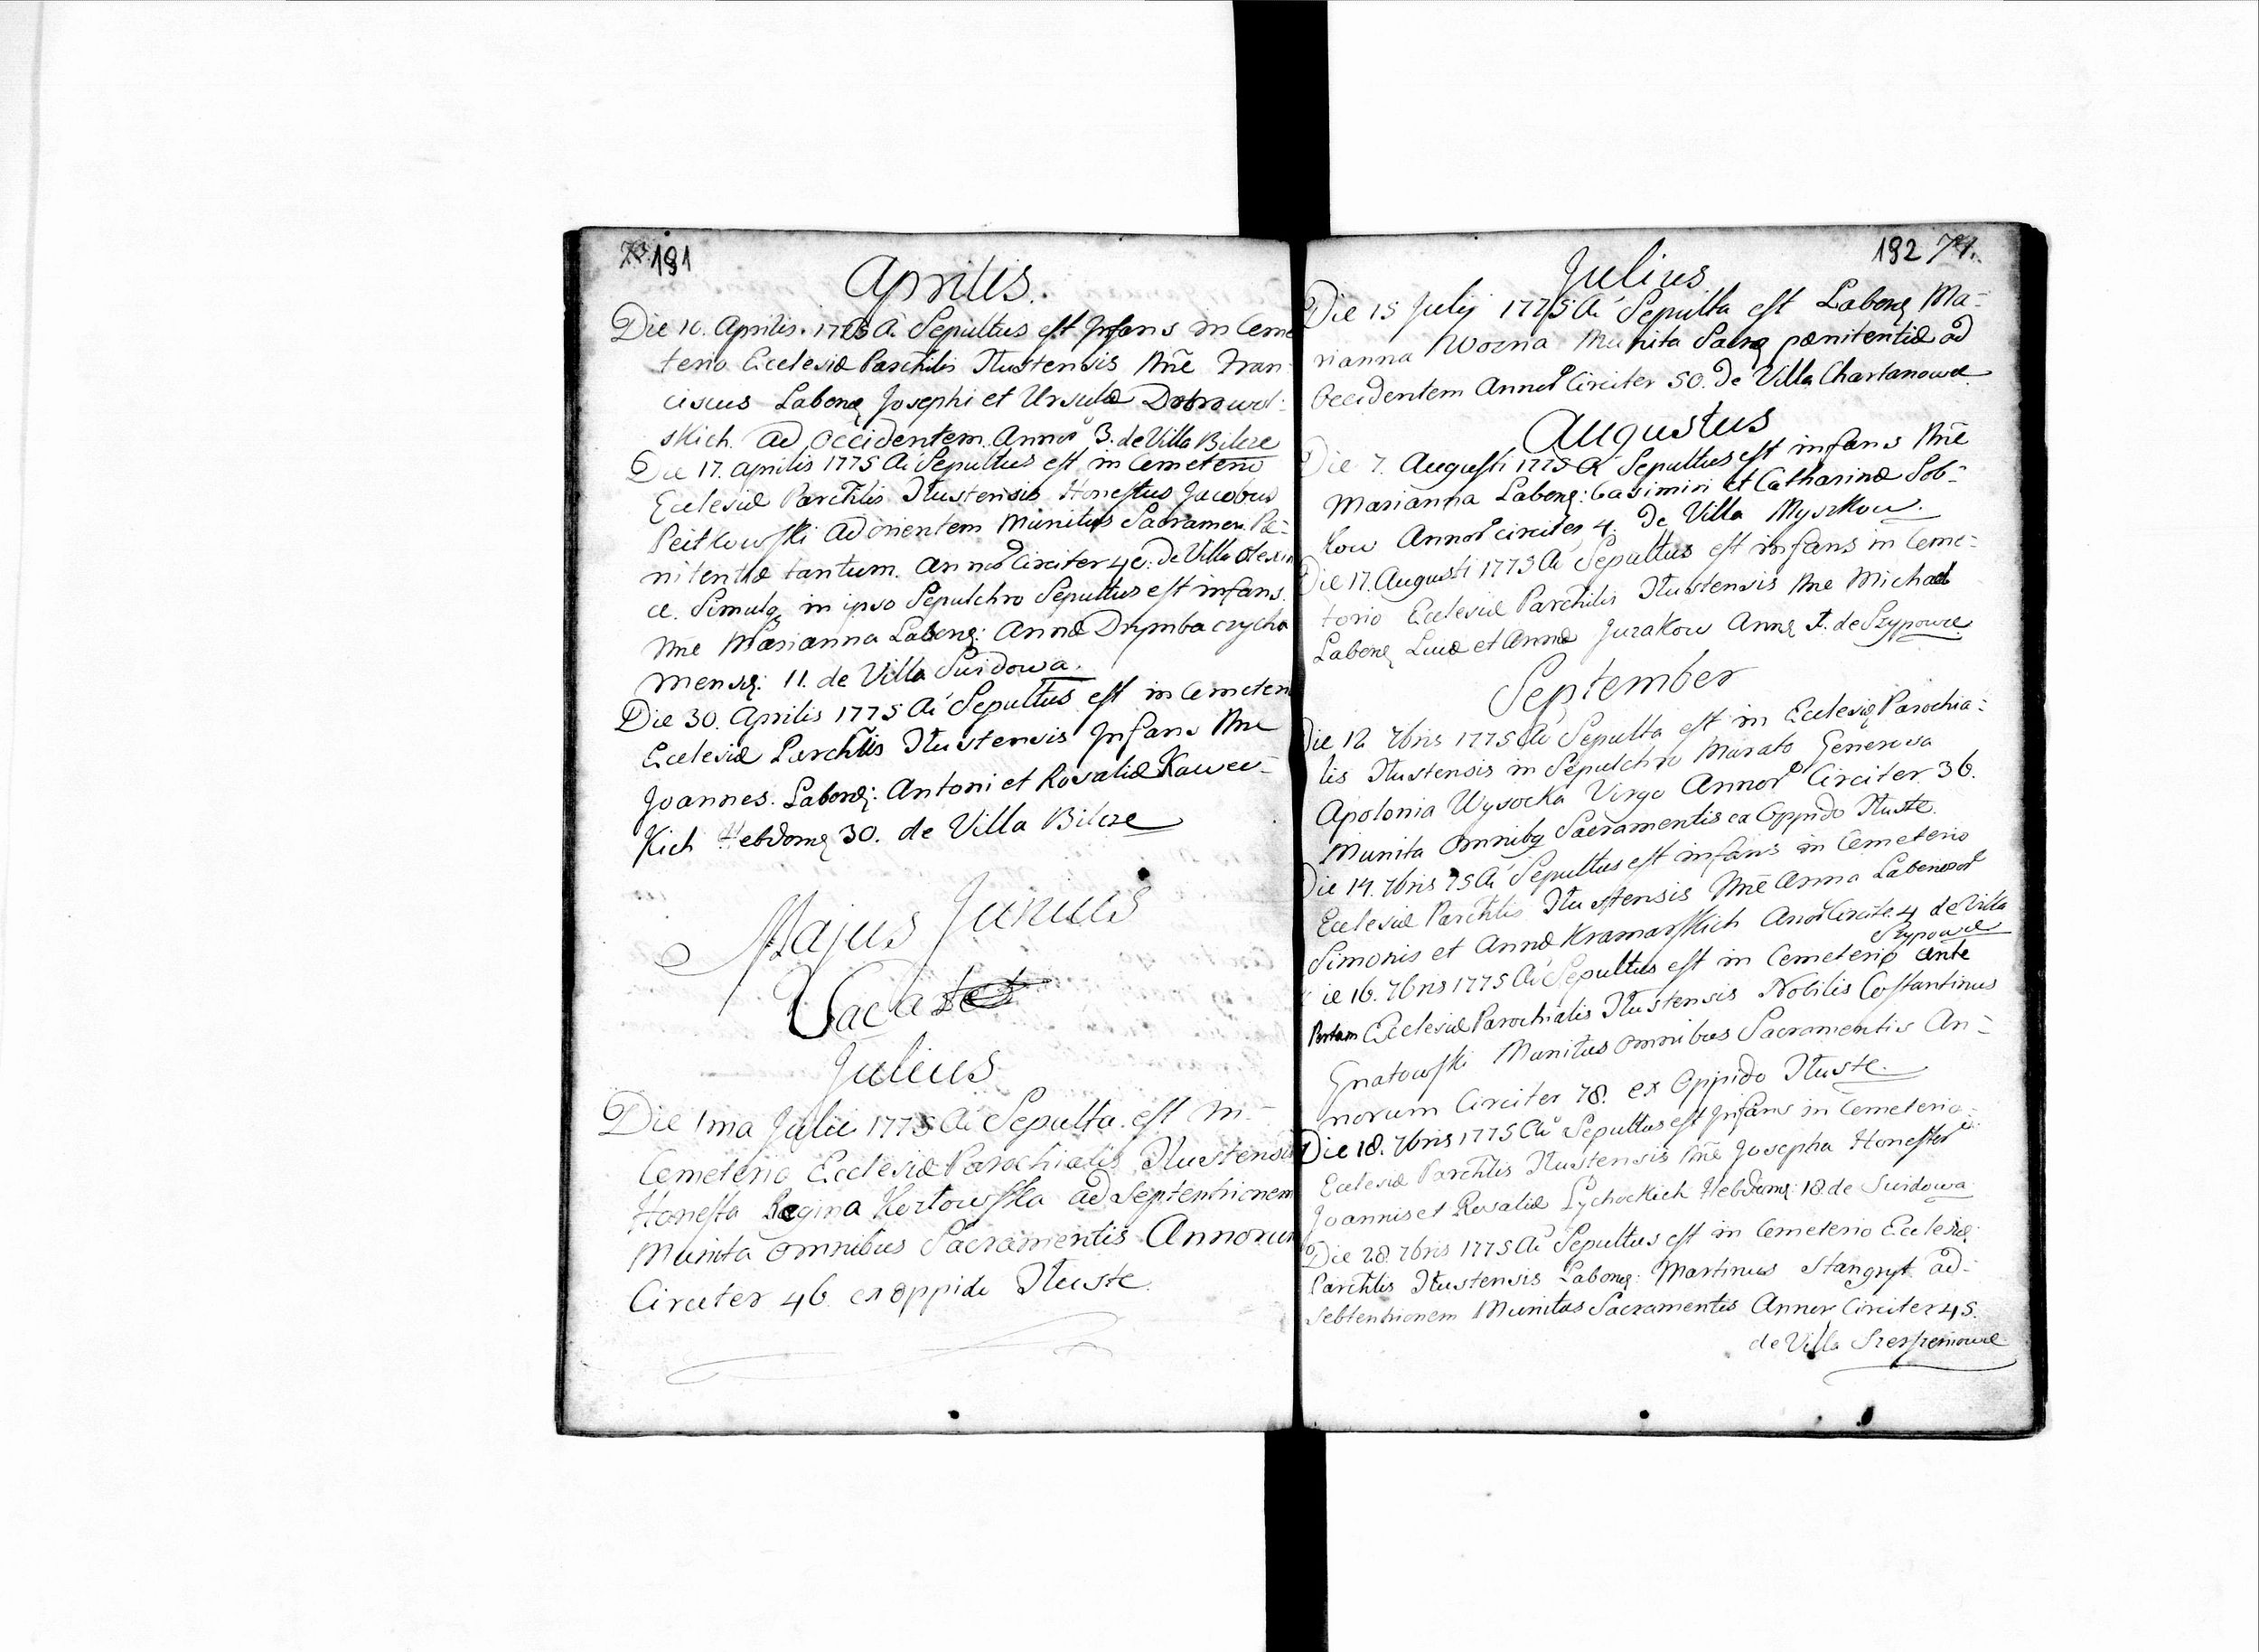 191
Aprilis.
Die 10. Aprilis. 1775 A. Sepultus est Infans in Ceme
terio Ecclesiæ Parchlis Tłustensis Nne Fran-
ciscus Laborę Josephi et Ursulæ Dobrowol-
skich. ad Occidentem. Annor 3. de Villa Bilcze
Die 17. Aprilis 1775 A. Sepultus est in Cemeterio
Ecclesiæ Parchlis Tłustensis Honestus Jacobus
Peitkowski ad orientem Munitus Sacramen. Pæ-
nitentiæ tantum. Annor Circiter 40. de Villa
Simulq in ipso Sepulchro Sepultus est infans.
Nne Marianna Laborę: Annæ Drymba czycha
Mensę: 11. de Villa Swidowa.
Die 30. Aprilis 1775 A. Sepultus est in Cemeteri
Ecclesiæ Parchlis Tłustensis Infans Nne
Joannes. Laborę: Antoni et Rosaliæ Kawec-
kich Hebdomę 30. de Villa Bilcze
Majus Junius
Vacat
Julius
Die 1ma Julii 1775 A. Sepulta. est in-
Cemeterio Ecclesiæ Parochialis Tłustensis
Honesta Regina Kozłowska ad Septentrionem
Munita omnibus Sacramentis Annorum
Circiter 46. ex oppido Tłuste.
192 74.
Julius
Die 15 Julij 1775 A. Sepulta est Laborę Ma-
rianna Wozna Munita Sacrę pænitentiæ ad
Occidentem Annor Circiter 50. de Villa Chartanowce
Augustus
Die 7. Augusti 1775 A. Sepultus est infans Nne
Marianna Laborę: Casimiri et Catharinæ Sob-
kow Annor circiter 4. De Villa Myszkow.
Die 17. Augusti 1775 A. Sepultus est infans in Ceme-
terio Ecclesiæ Parchilis Tłustensis Nne Michael
Laborę Lucæ et Annæ Jurakow Annę 1. de Szypowce
September
Die 12 7bris 1775 A. Sepulta est in Ecclesię Parochia-
lis Tłustensis in Sepulchro Murato Generosa
Apolonia Wysocka Virgo Annor Circiter 36.
Munita Omnibq Sacramentis ex Oppido Tłuste.
Die 14. 7bris 75 A. Sepultus est infans in Cemeterio
Ecclesiæ Parchlis Tłustensis Nne Anna Laborior
Simonis et Annæ Kramarskich Anor Circite. 4 de Villa
Szypowce
ie 16. 7bris 1775 A. Sepultus est in Cemeterio ante
Portam Ecclesiæ Parochialis Tłustensis Nobilis Costantinus
Gnatowski Munitus omnibus Sacramentis An-
norum Circiter 78. ex Oppido Tłuste.
Die 18. 7bris 1775 A. Sepultus est Infans in Cemeterio
Ecclesiæ Parchlis Tłustensis Nne Josepha Honestor
Joannis et Rosaliæ Lychockich Hebdomę: 18 de Swidowa
Die 28. 7bris 1775 A. Sepultus est in Cemeterio Ecclesię
Parchlis Tłustensis Laborę: Martinus Stangryt ad-
Sebtentrionem Munitus Sacramentis Annor Circiter 45.
de Villa